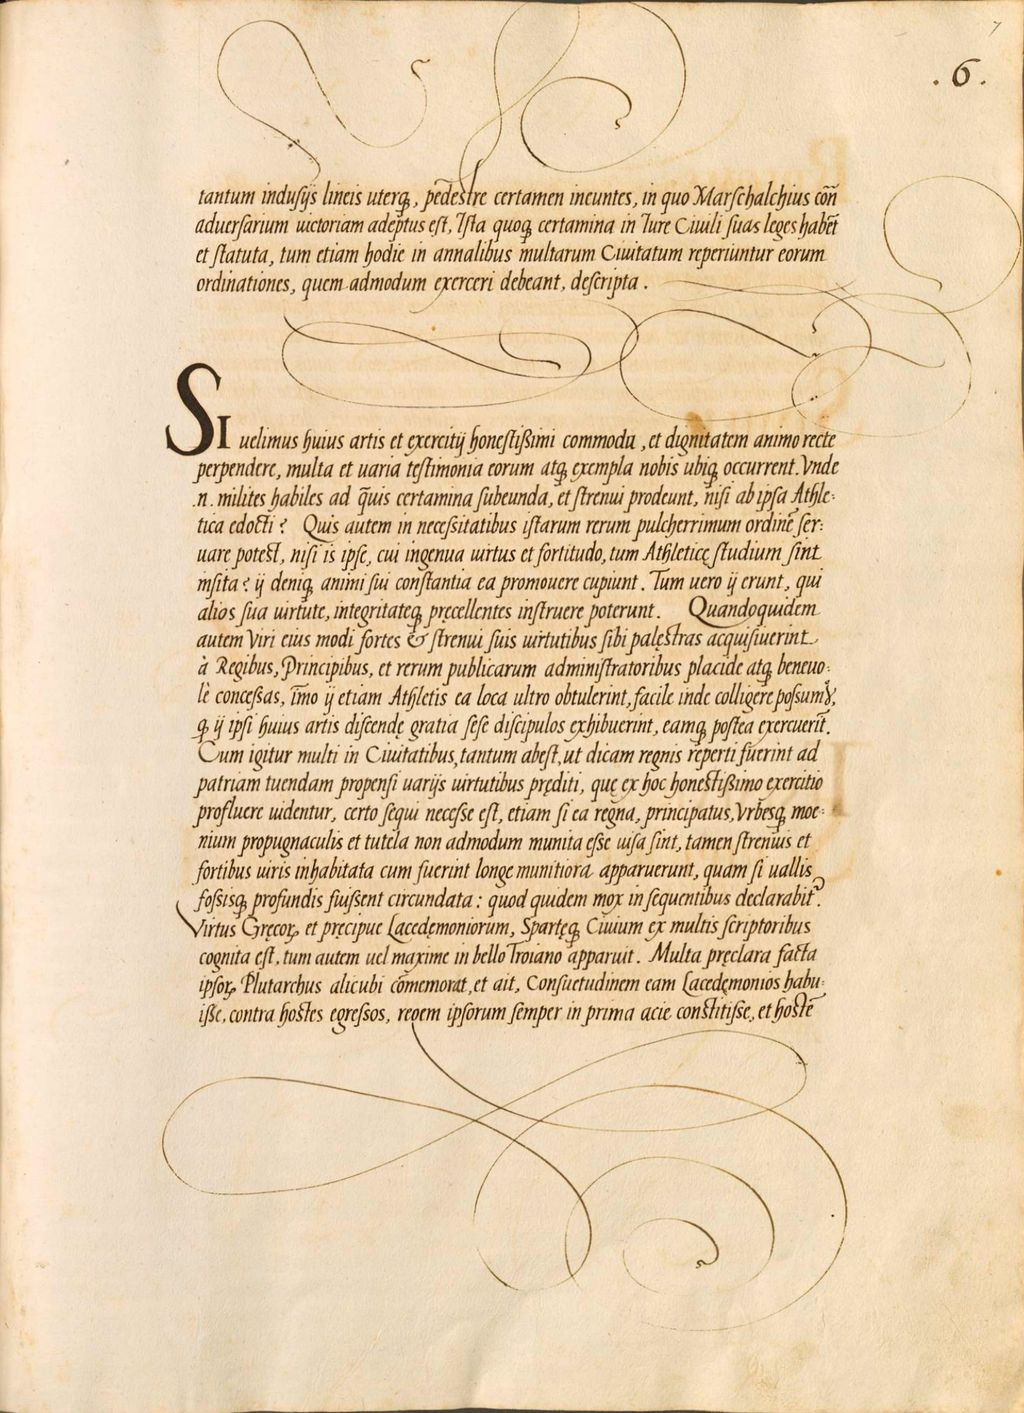 7
. 6 .
tantum indusijs lineis uterq₃, pedestre certamen ineuntes, in quo Marschalchius cōn̄
aduersarium uictoriam adeptus est, Ista quoq₃ certamina in Iure Ciuili suas leges habēt
et statuta, tum etiam hodie in annalibus multarum Ciuitatum reperiuntur eorum
ordinationes, quem admodum exerceri debeant, descripta .
SI uelimus huius artis et exercitij honestißimi commoda, et dignitatem animo recte
perpendere, multa et uaria testimonia eorum atq₃ exempla nobis ubiq₃ occurrent. Vnde
.n. milites habiles ad q̄uis certamina subeunda, et strenui prodeunt, nisi ab ipsa Athle:
tica edocti ? Quis autem in necessitatibus istarum rerum pulcherrimum ordinē ser:
uare potest, nisi is ipse, cui ingenua uirtus et fortitudo, tum Athleticę studium sint
insita ? ij deniq₃ animi sui constantia ea promouere cupiunt . Tum uero ij erunt, qui
alios sua uirtute, integritateq₃ pręcellentes instruere poterunt . Quandoquidem
autem Viri eius modi fortes & strenui suis uirtutibus sibi palęstras acquisiuerint
à Regibus, Principibus, et rerum publicarum administratoribus placide atq₃ beneuo:
lē concessas, īmo ij etiam Athletis ea loca ultro obtulerint, facile inde colligere possumꝰ,
ꝙ ij ipsi huius artis discendę gratia sese discipulos exhibuerint, eamq₃ postea exercuerīt.
Cum igitur multi in Ciuitatibus, tantum abest, ut dicam regnis reperti fuerint ad
patriam tuendam propensi uarijs uirtutibus pręditi, quę ex hoc honestißimo exercitio
profluere uidentur, certo sequi necesse est, etiam si ea regna, principatus, Vrbesq₃ moe:
nium propugnaculis et tutela non admodum munita esse uisa sint, tamen strenuis et
fortibus uiris inhabitata cum fuerint longe munitiora apparuerunt, quam si uallis
fossisq₃ profundis fuissent circundata : quod quidem mox in sequentibus declarabit᷑.
Virtus Gręcoꝝ et pręcipue Lacedęmoniorum, Spartęq₃ Ciuium ex multis scriptoribus
cognita est, tum autem uel maxime in bello Troiano apparuit . Multa pręclara facta
ipsoꝝ Plutarchus alicubi cōmemorat, et ait, Consuetudinem eam Lacedęmonios habu:
iße, contra hostes egressos, regem ipsorum semper in prima acie constitisse, et hostē